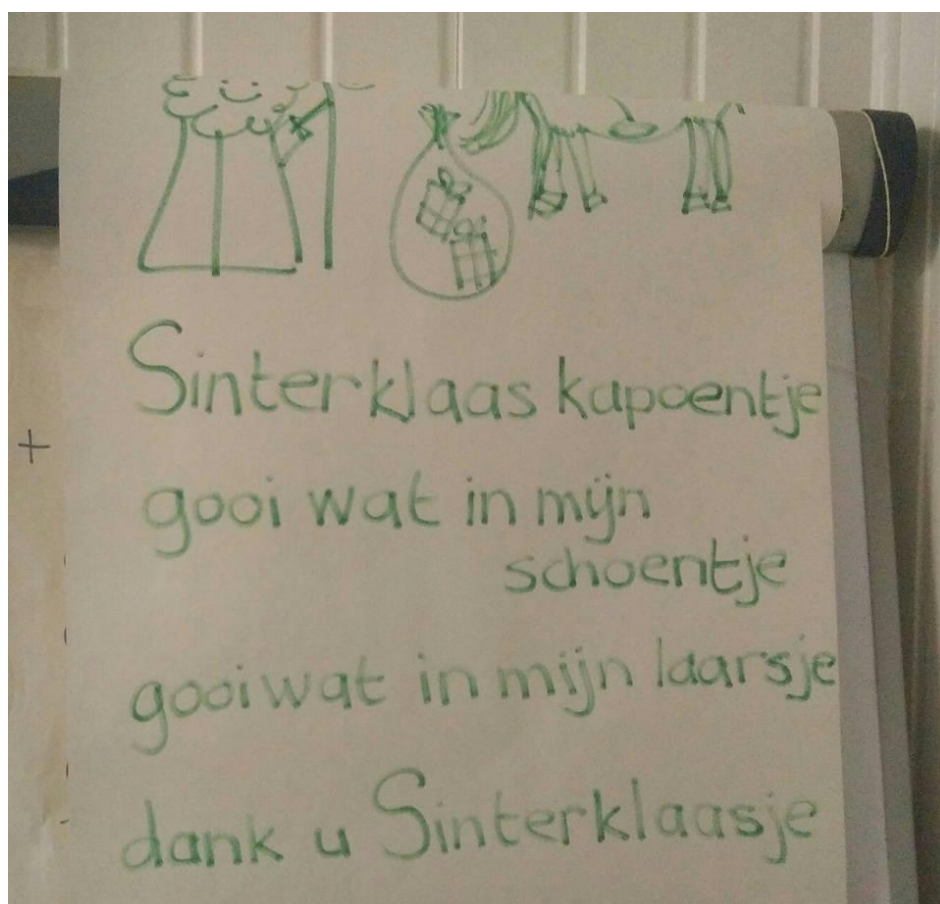 Sinterklaas kapoentje
+
gooi wat in mijn
schoentje
gooi wat in mijn laarsje
dank u Sinterklaasje